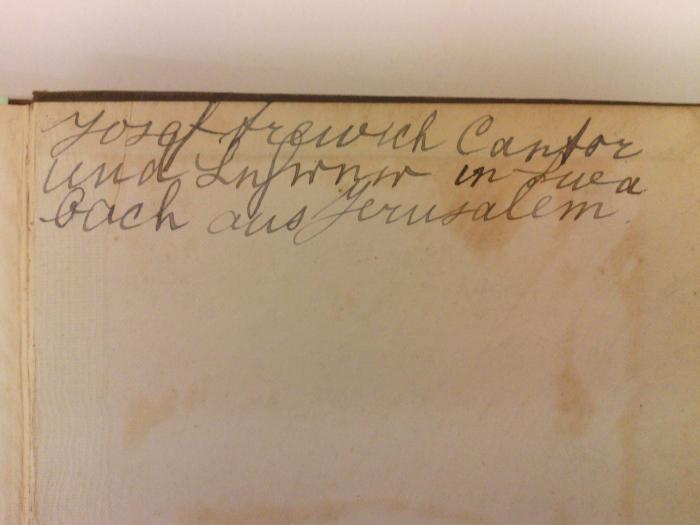 Josef Arewich Cantor
und Lehrer in Swa
bach aus Jerusalem